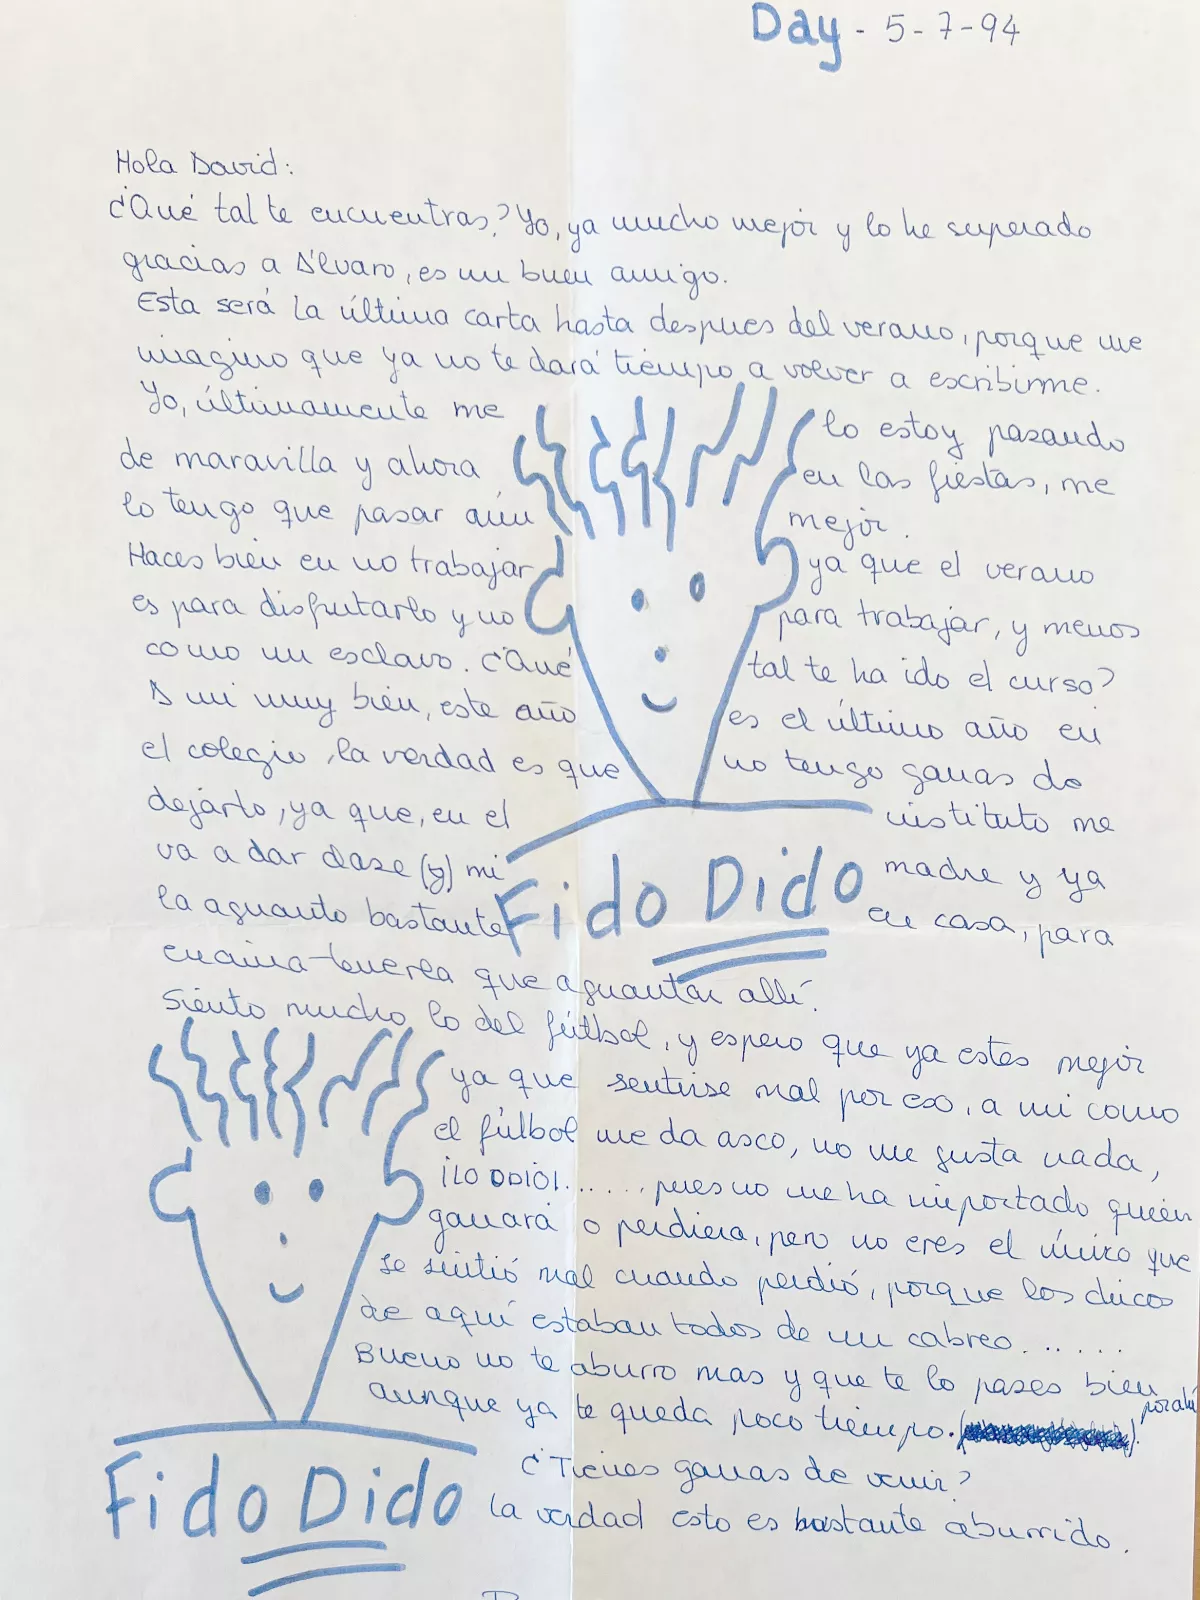 Day - 5-7-94
Hola David:
¿Qué tal te encuentras? Yo, ya mucho mejor y lo he superado
gracias a Álvaro, es un buen amigo.
Esta será la última carta hasta despues del verano, porque me
imagino que ya no te dará tiempo a volver a escribirme.
Yo, últimamente me lo estoy pasando
de maravilla y ahora en las fiestas, me
lo tengo que pasar aún mejor.
Haces bien en no trabajar ya que el verano
es para disfrutarlo y no para trabajar, y menos
como un esclavo. ¿Qué tal te ha ido el curso?
A mi muy bien, este año es el último año en
el colegio, la verdad es que no tengo ganas de
dejarlo, ya que, en el instituto me
va a dar clase (y) mi madre y ya
la aguanto bastante en casa, para
encima tenerla que aguantar allí.
Fido Dido
Siento mucho lo del fútbol, y espero que ya estes mejor
ya que sentirse mal por eso, a mi como
el fútbol me da asco, no me gusta nada,
¡LO ODIO!...... pues no me ha importado quién
ganará o perdiera, pero no eres el único que
se sintió mal cuando perdió, porque los chicos
de aquí estaban todos de un cabreo.......
Bueno no te aburro mas y que te lo pases bien
por ahí
aunque ya te queda poco tiempo.
¿Tienes ganas de venir?
La verdad esto es bastante aburrido.
Fido Dido